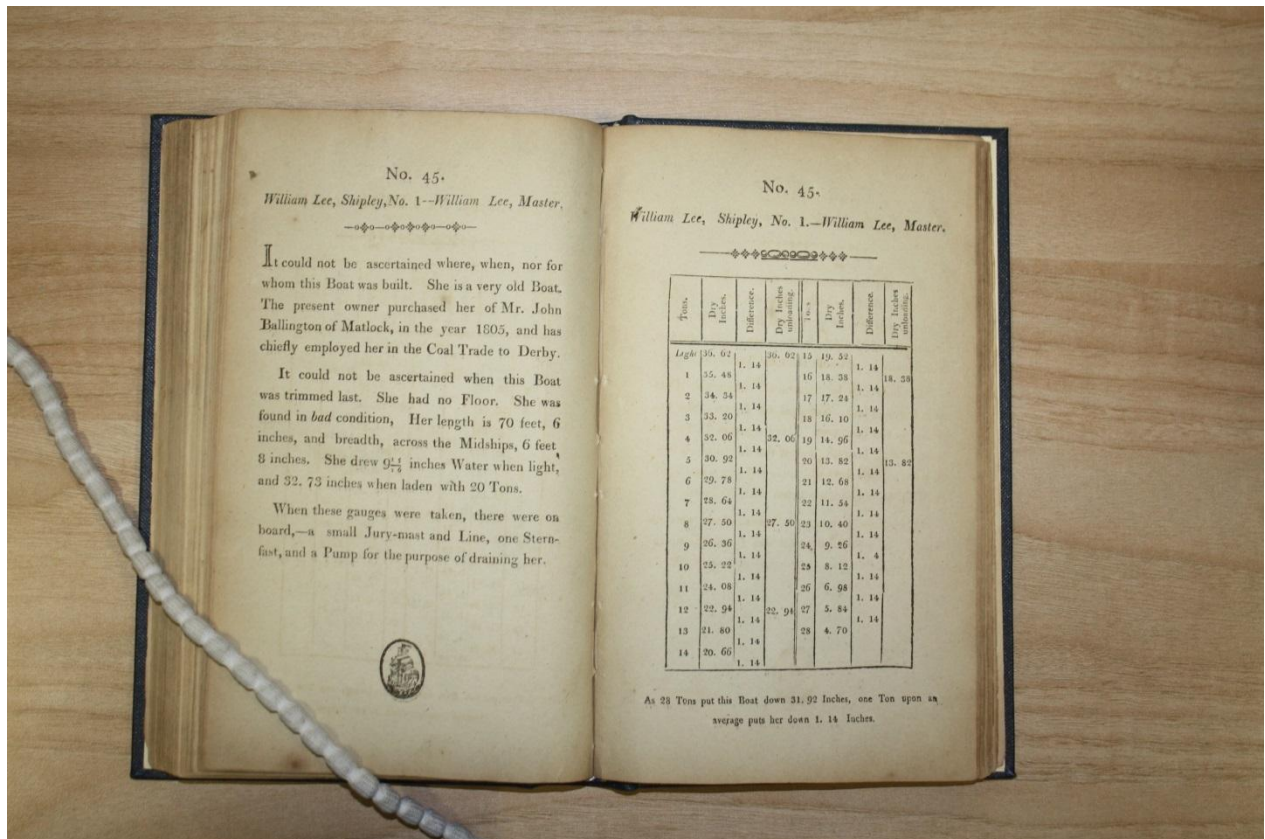 No. 45.
William Lee, Shipley,No. 1--William Lee, Master.
It could not be ascertained where, when, nor for
whom this Boat was built. She is a very old Boat.
The present owner purchased her of Mr. John
Ballington of Matlock, in the year 1805, and has
chiefly employed her in the Coal Trade to Derby.
It could not be ascertained when this Boat
was trimmed last. She had no Floor. She was
found in bad condition, Her length is 70 feet, 6
inches, and breadth, across the Midships, 6 feet
8 inches. She drew 9 11/16 inches Water when light,
and 32. 73 inches when laden with 20 Tons.
When these gauges were taken, there were on
board,—a small Jury-mast and Line, one Stern-
fast, and a Pump for the purpose of draining her.
No. 45.
William Lee, Shipley, No. 1.—William Lee, Master.
Tons. Dry Inches. Difference. Dry Inches unloading. Tons Dry Inches. Difference. Dry Inches unloading.
Light 36. 62 36. 62 15 19. 52
1. 14 1. 14
1 35. 48 16 18. 38 18. 38
1. 14 1. 14
2 34. 34 17 17. 24
1. 14 1. 14
3 33. 20 18 16. 10
1. 14 1. 14
4 32. 06 32. 06 19 14. 96
1. 14 1. 14
5 30. 92 20 13. 82 13. 82
1. 14 1. 14
6 29. 78 21 12. 68
1. 14 1. 14
7 28. 64 22 11. 54
1. 14 1. 14
8 27. 50 27. 50 23 10. 40
1. 14 1. 14
9 26. 36 24 9. 26
1. 14 1. 4
10 25. 22 25 8. 12
1. 14 1. 14
11 24. 08 26 6. 98
1. 14 1. 14
12 22. 94 22. 94 27 5. 84
1. 14 1. 14
13 21. 80 28 4. 70
1. 14
14 20. 66
1. 14
As 28 Tons put this Boat down 31. 92 Inches, one Ton upon an
average puts her down 1. 14 Inches.